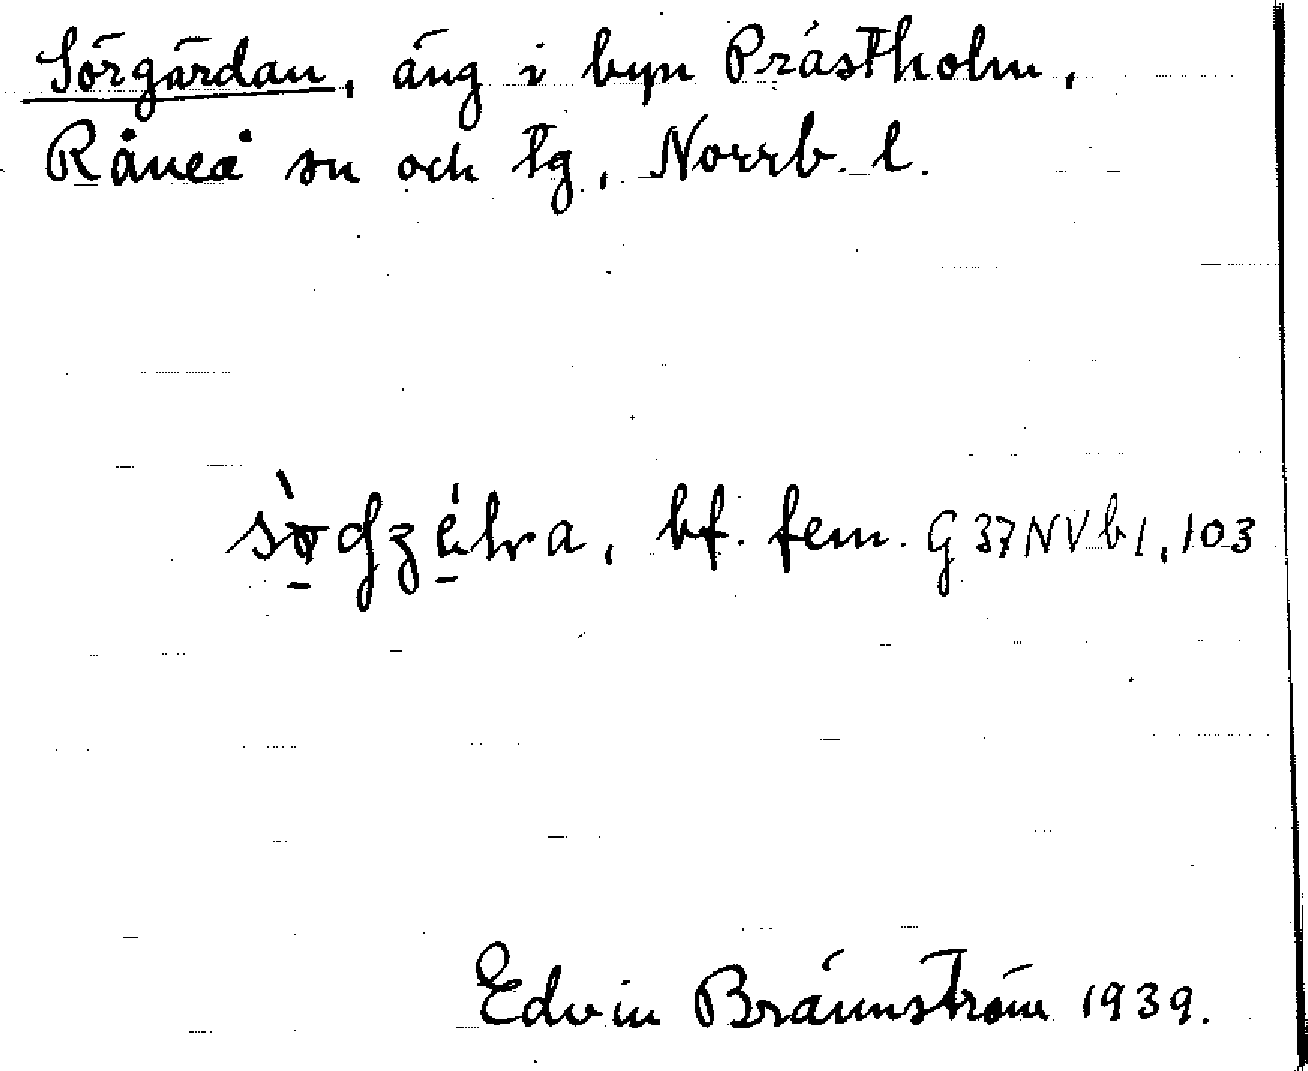 Sörgärdan, äng i byn Prästholm,
Råneå sn och tg, Norrb. l.
bf. fem. G 37 NVb 1, 103
Edvin Brännström 1939.